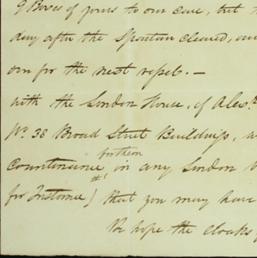 9 Boxes of yours to our care, but
day after the Spartan cleared, an
on for the next vessel. —
with the London House, of Alex.r
No. 38 Broad Street Buildings, a
further
Countenance in any London
for Instance) that you may have
We hope the cloaks